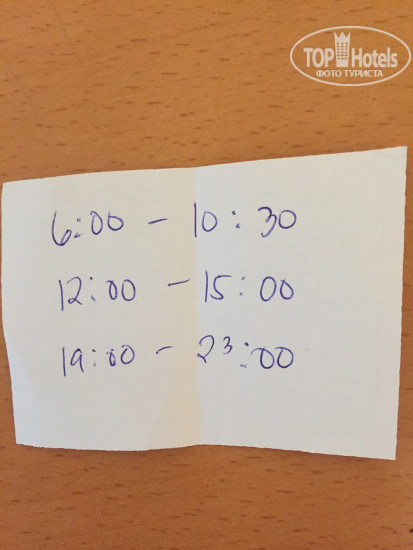 TOP Hotels
ФОТО ТУРИСТА
6:00 - 10:30
12:00 - 15:00
19:00 - 23:00